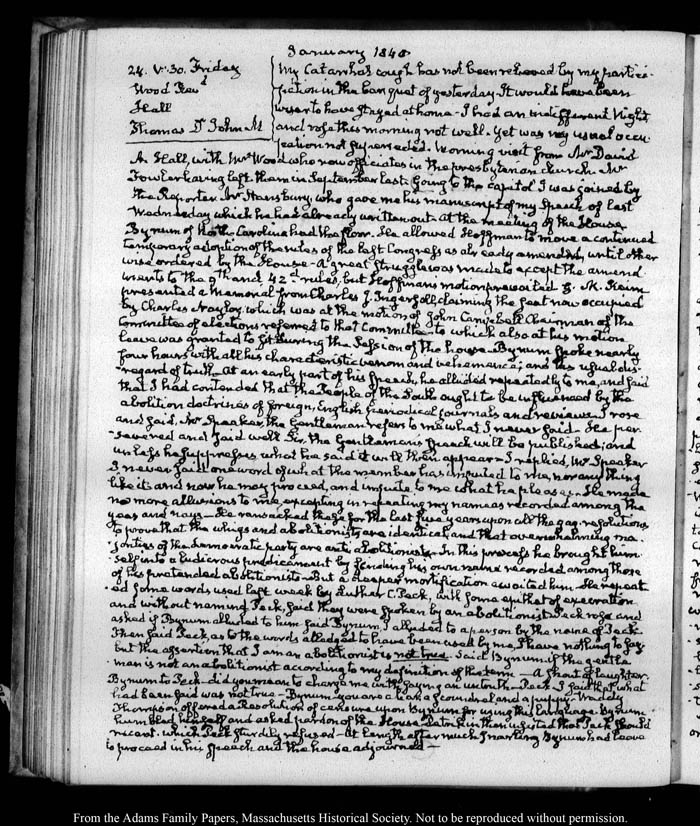 January 1840
24. V:30. Friday
Wood Revd
Hall
Thomas D St John M
My Catarrhal cough has not been relieved by my partici-
-pation in the banquet of yesterday. It would have been
wiser to have stayed at home - I had an indifferent Night
and rose this morning not well. Yet was my usual occu-
-pation not superseded. Morning visit from Mr David
A. Hall, with Mr Wood who now officiates in the presbyterian church Mr
Fowler having left them in September last. Going to the capitol I was joined by
the Reporter Mr Stansbury who gave me his manuscript of my Speech of last
Wednesday which he had already written out. At the meeting of the House
Bynum of North Carolina had the floor. He allowed Hoffman to move a continued
temporary adoption of the rules of the last Congress as already amended, until other
wise ordered by the House - A great struggle was made to except the amend
ments to the 9th and 42d rules, but Hoffman's motion prevailed G. M. Keim
presented a Memorial from Charles J. Ingersoll, claiming the seat now occupied
by Charles Naylor, which was at the motion of John Campbell Chairman of the
Committee of elections referred to that Committee - to which also at his motion
leave was granted to sit during the Session of the house. Bynum spoke nearly
four hours with all his characteristic venom and vehemence; and his usual dis-
-regard of truth - At an early part of his Speech, he alluded repeatedly to me, and said
that I had contended that the People of the South ought to be influenced by the
abolition doctrines of foreign, English periodical journals and reviews. I rose
and said, Mr Speaker, the Gentleman refers to me what I never said - He per
-severed and said well Sir, the Gentleman's Speech will be published; and
unless he suppresses what he said it will then appear - I replied, Mr Speaker
I never said one word of what the member has imputed to me, nor any thing
like it: and now he may proceed, and impute to me what he pleases. He made
no more allusions to me, excepting in repeating my name as recorded among the
yeas and nays - He ransacked these for the last five years upon all the gag-resolutions
to prove that the whigs and abolitionists are identical, and that overwhelming ma-
-jorities of the democratic party are anti abolitionists. In this process he brought him
-self into a ludicrous predicament by finding his own name recorded among those
of his pretended abolitionists - But a deeper mortification awaited him. He repeat
-ed some words used last week by Luther C. Peck, with some epithet of execration
and without naming Peck, said they were spoken by an abolitionist. Peck rose and
asked if Bynum alluded to him said Bynum, I alluded to a person by the name of Peck.
Then said Peck, as to the words alledged to have been used by me, I have nothing to say
but the assertion that I am an abolitionist is not true. Said Bynum if the gentle
-man is not an abolitionist according to my definition of the term - A shout of laughter.
Bynum to Peck - did you mean to charge me with saying an untruth - Peck I said that what
had been said was not true - Bynum - you are a liar a scoundrel and a puppy - Waddy
Thompson offered a Resolution of censure upon Bynum for using this language. Bynum
humbled himself and asked pardon of the House. Petrikin then insisted that Peck should
recant. which Peck sturdily refused - At length after much snarling Bynum had leave
to proceed in his Speech and the house adjourned -
From the Adams Family Papers, Massachusetts Historical Society. Not to be reproduced without permission.